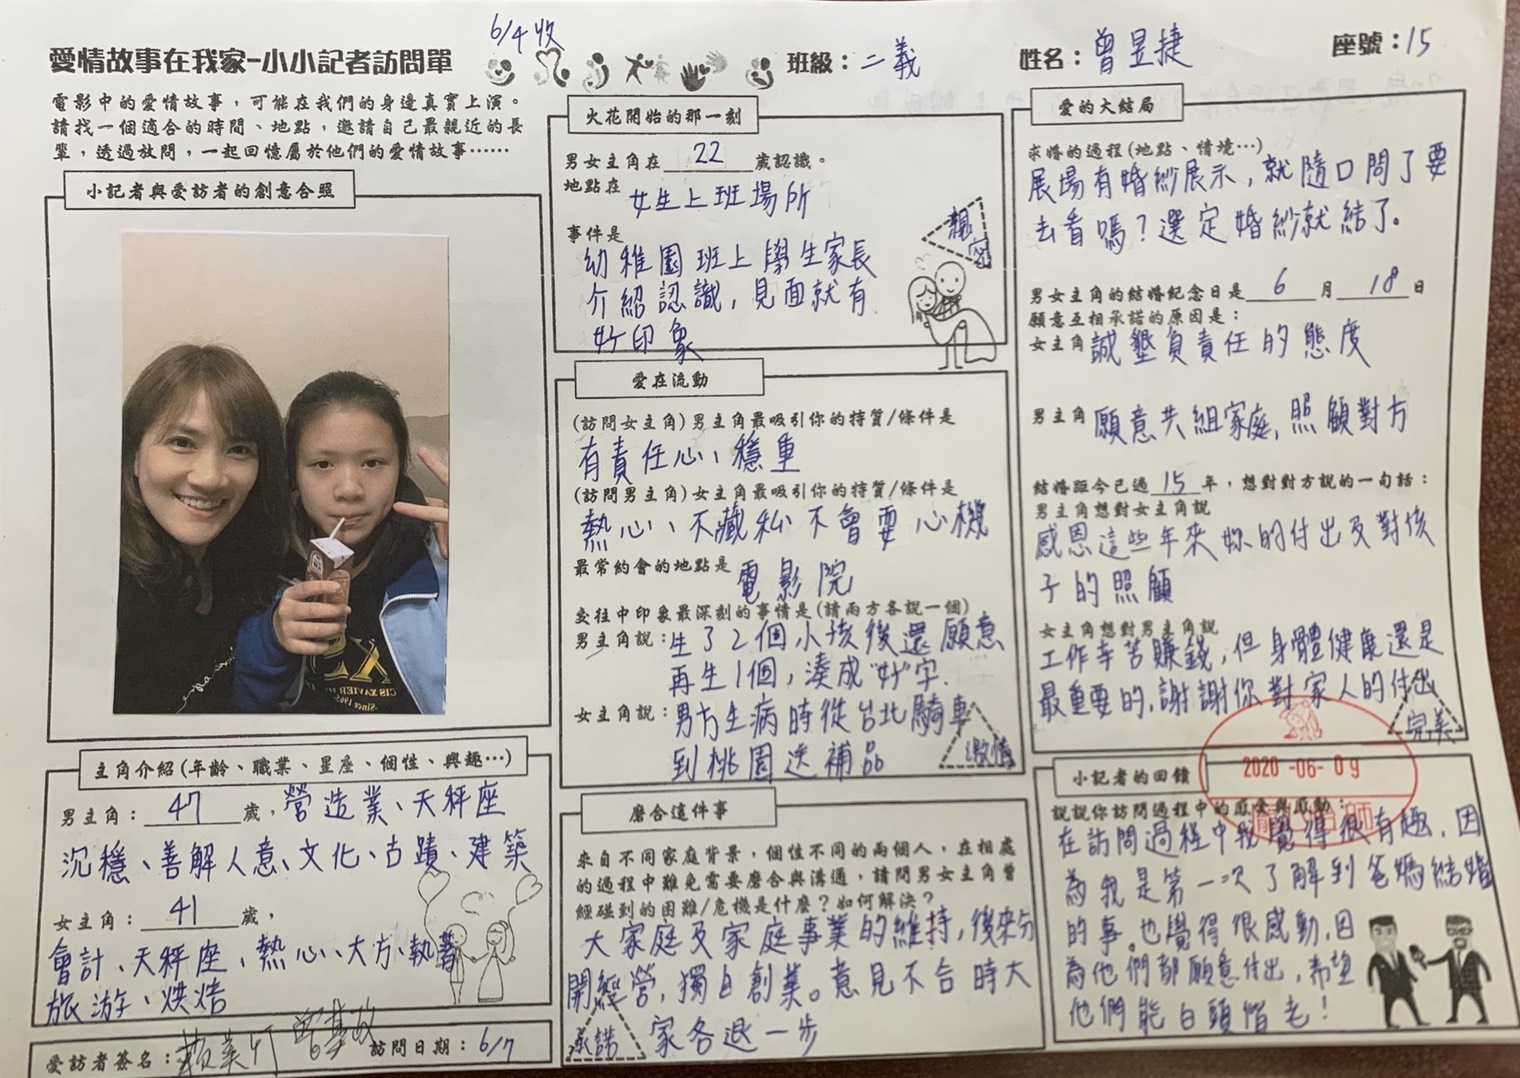 6/4收
愛情故事在我家-小小記者訪問單
班級：二義
姓名：曾昱捷
座號：15
電影中的愛情故事，可能在我們的身邊真實上演。
請找一個適合的時間、地點，邀請自己最親近的長
輩，透過放問，一起回憶屬於他們的愛情故事……
小記者與受訪者的創意合照
主角介紹(年齡、職業、星座、個性、興趣…)
男主角：47歲，營造業、天秤座
沉穩、善解人意、文化、古蹟、建築
女主角：41歲，
會計、天秤座、熱心、大方、執著
旅游、烘焙
受訪者簽名：
訪問日期：6/7
火花開始的那一刻
男女主角在22歲認識。
地點在女生上班場所
事件是
幼稚園班上學生家長
介紹認識，見面就有
好印象
親密
愛在流動
(訪問女主角)男主角最吸引你的特質/條件是
有責任心、穩重
(訪問男主角)女主角最吸引你的特質/條件是
熱心、不藏私不會耍心機
最常約會的地點是電影院
交往中印象最深刻的事情是(請兩方各說一個)
男主角說：生了2個小孩後還願意
再生1個，湊成"好"字.
女主角說：男方生病時從台北騎車
到桃園送補品
激情
磨合這件事
來自不同家庭背景，個性不同的兩個人，在相處
的過程中難免需要磨合與溝通，請問男女主角曾
經碰到的困難/危機是什麼？如何解決？
大家庭及家庭事業的維持，後來分
開經營，獨自創業。意見不合時大
家各退一步
承諾
愛的大結局
求婚的過程(地點、情境…)
展場有婚紗展示，就隨口問了要
去看嗎？選定婚紗就結了。
男女主角的結婚紀念日是6月18日
願意互相承諾的原因是：
女主角誠墾負責任的態度
男主角願意共組家庭，照顧對方
結婚距今已過15年，想對對方說的一句話：
男主角想對女主角說
感恩這些年來妳的付出及對孩
子的照顧
女主角想對男主角說
工作辛苦賺錢，但身體健康還是
最重要的，謝謝你對家人的付出
完美
小記者的回饋
2020-06-09
說說你訪問過程中的感受與感動：
在訪問過程中我覺得很有趣，因
為我是第一次了解到爸媽結婚
的事。也覺得很感動，因
為他們都願意付出，希望
他們能白頭偕老！